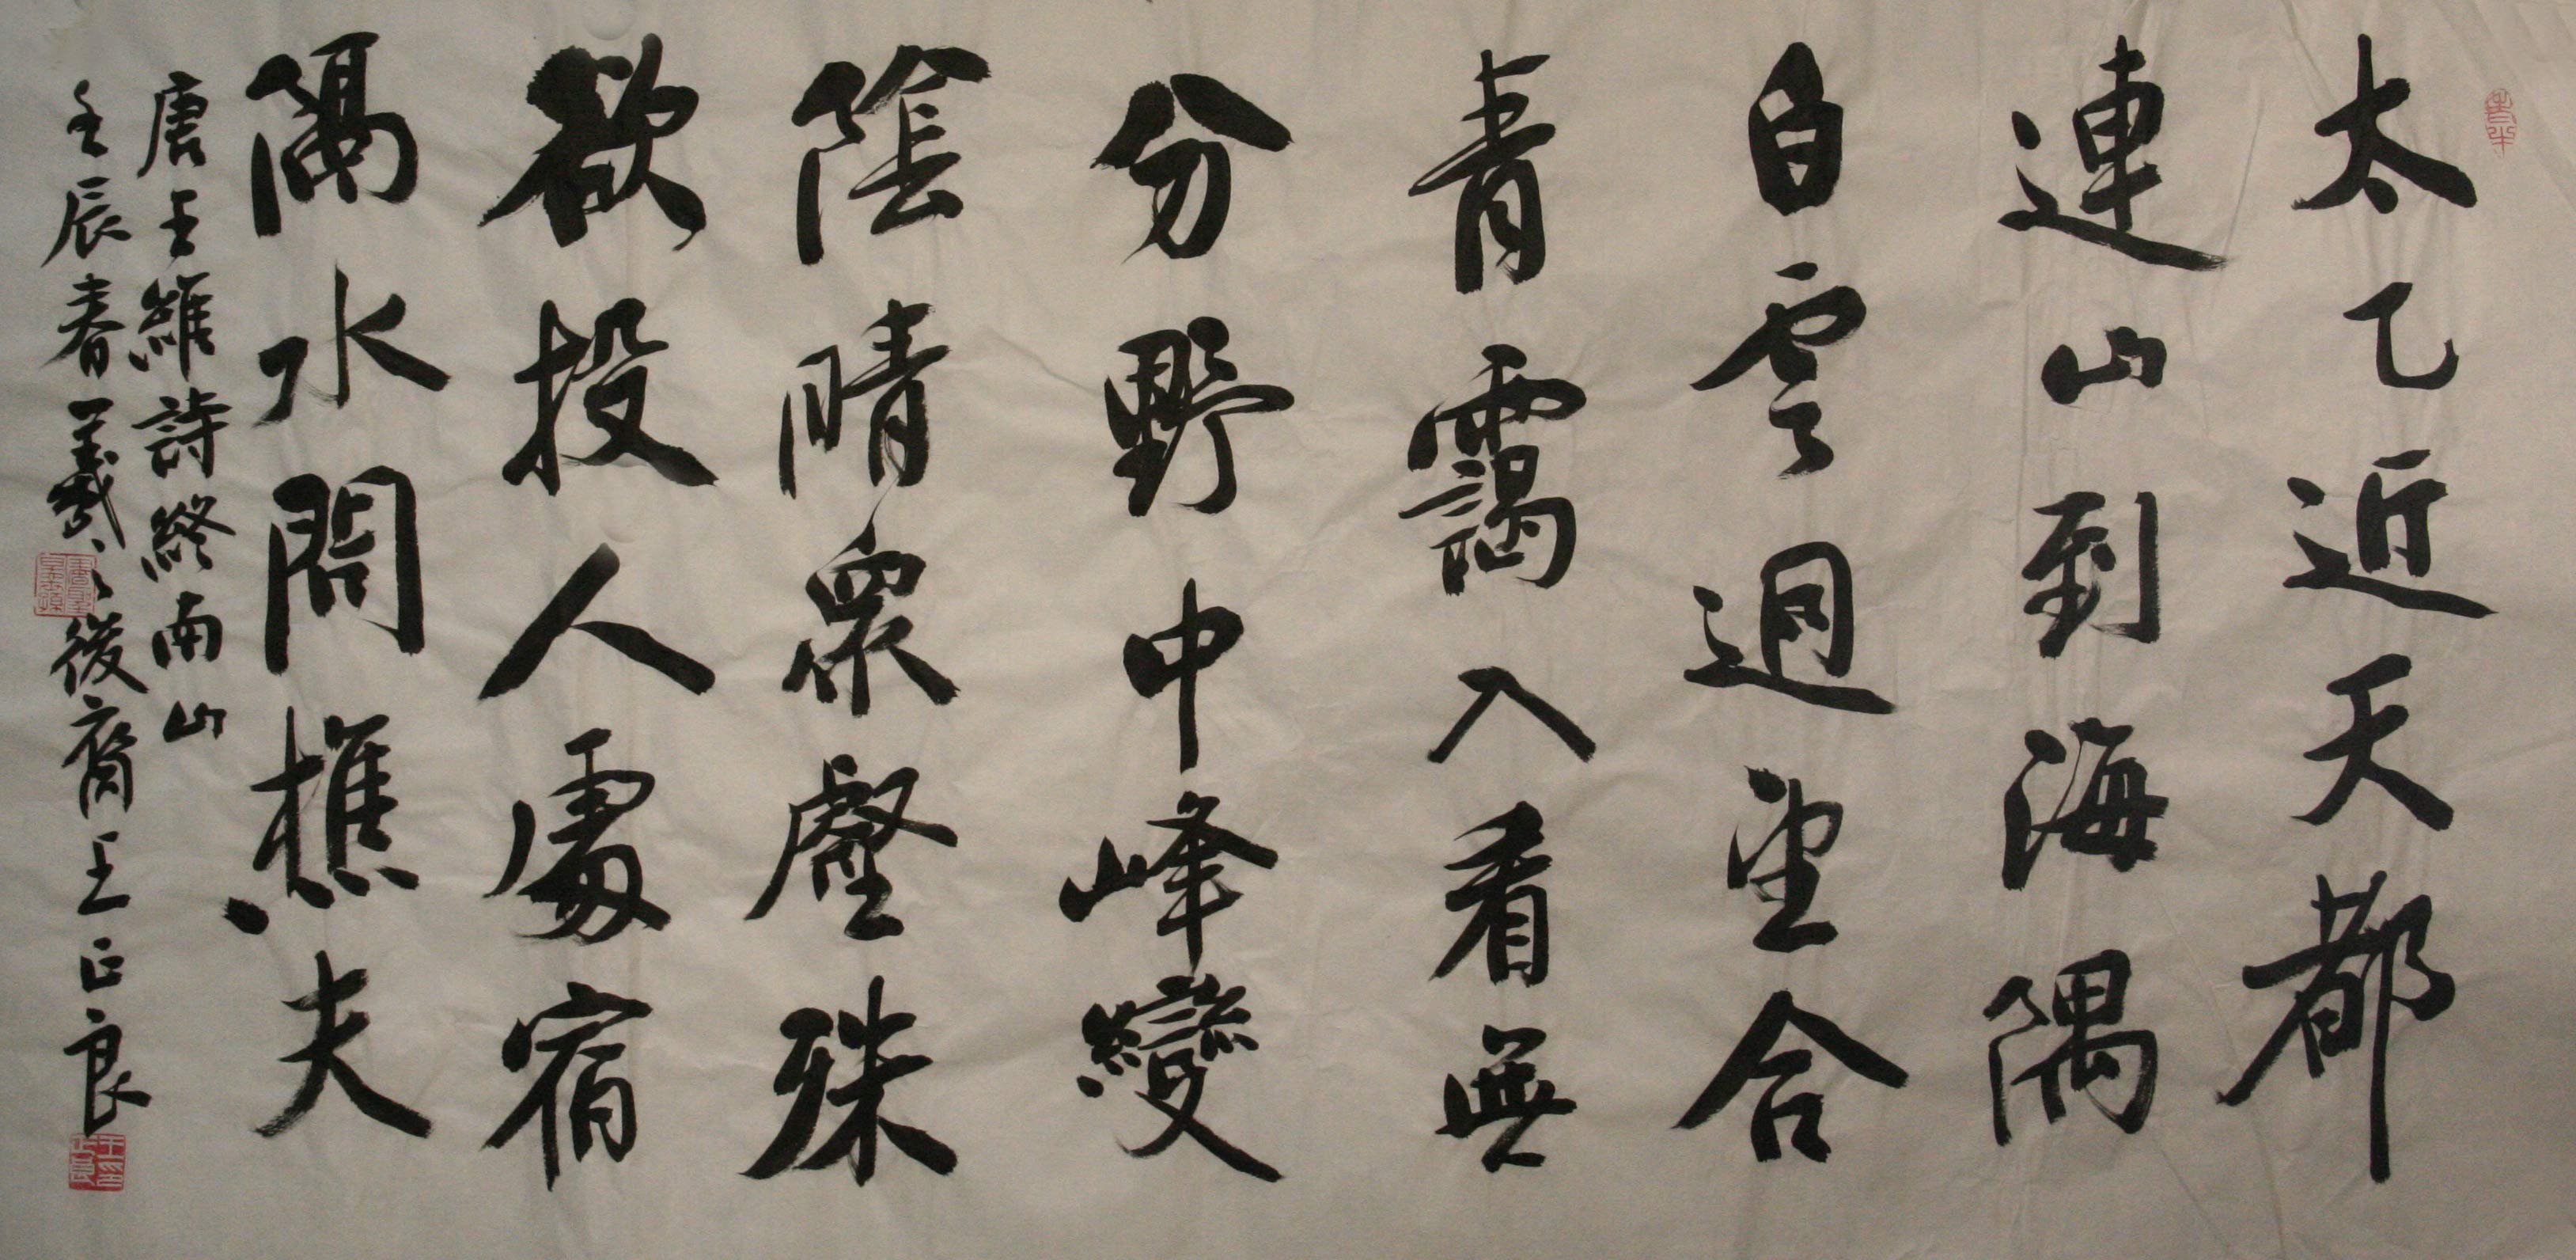 太乙近天都
連山到海隅
白雲迴望合
青靄入看無
分野中峰變
陰晴眾壑殊
欲投人處宿
隔水問樵夫
唐王維詩終南山
壬辰春羲之後裔王正良
王印正良